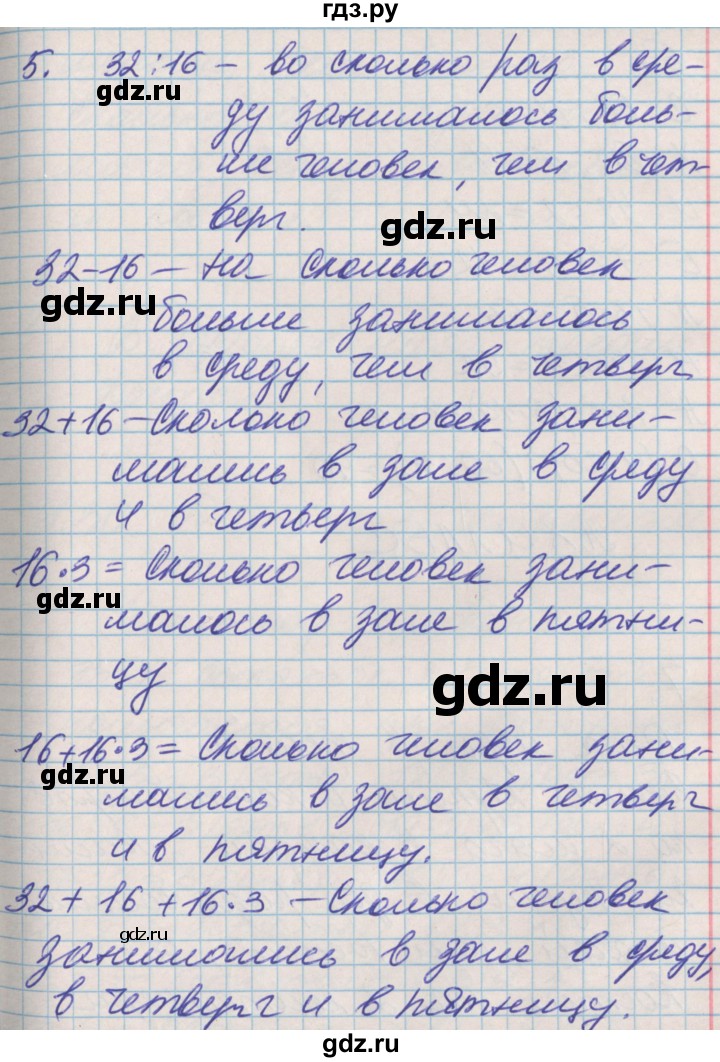 гдз.ру
5. 32:16 – во сколько раз в сре-
gdz.ru
ду занималось боль-
ше человек, чем в чет-
верг.
gdz.ru
32-16 – на сколько человек
gdz.ru
больше занималось
в среду, чем в четверг
32+16 – Сколоко человек зани-
gdz.ru
мались в зале в среду
и в четверг
16·3 = Сколько человек зани-
gdz.ru
малось в зале в пятни-
цу
gdz.ru
16+16·3 = Сколько человек зани-
gdz.ru
мались в зале в четверг
и в пятницу.
32 + 16 + 16·3 – Сколько человек
gdz.ru
занимались в зале в среду,
в четверг и в пятницу.
gdz.ru